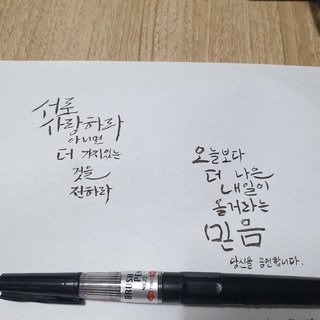 서로
사랑하라
아니면
더 가치있는
것을
전하라
오늘보다
더 나은
내일이
올거라는
믿음
당신을 응원합니다.
BRUSH
PEN